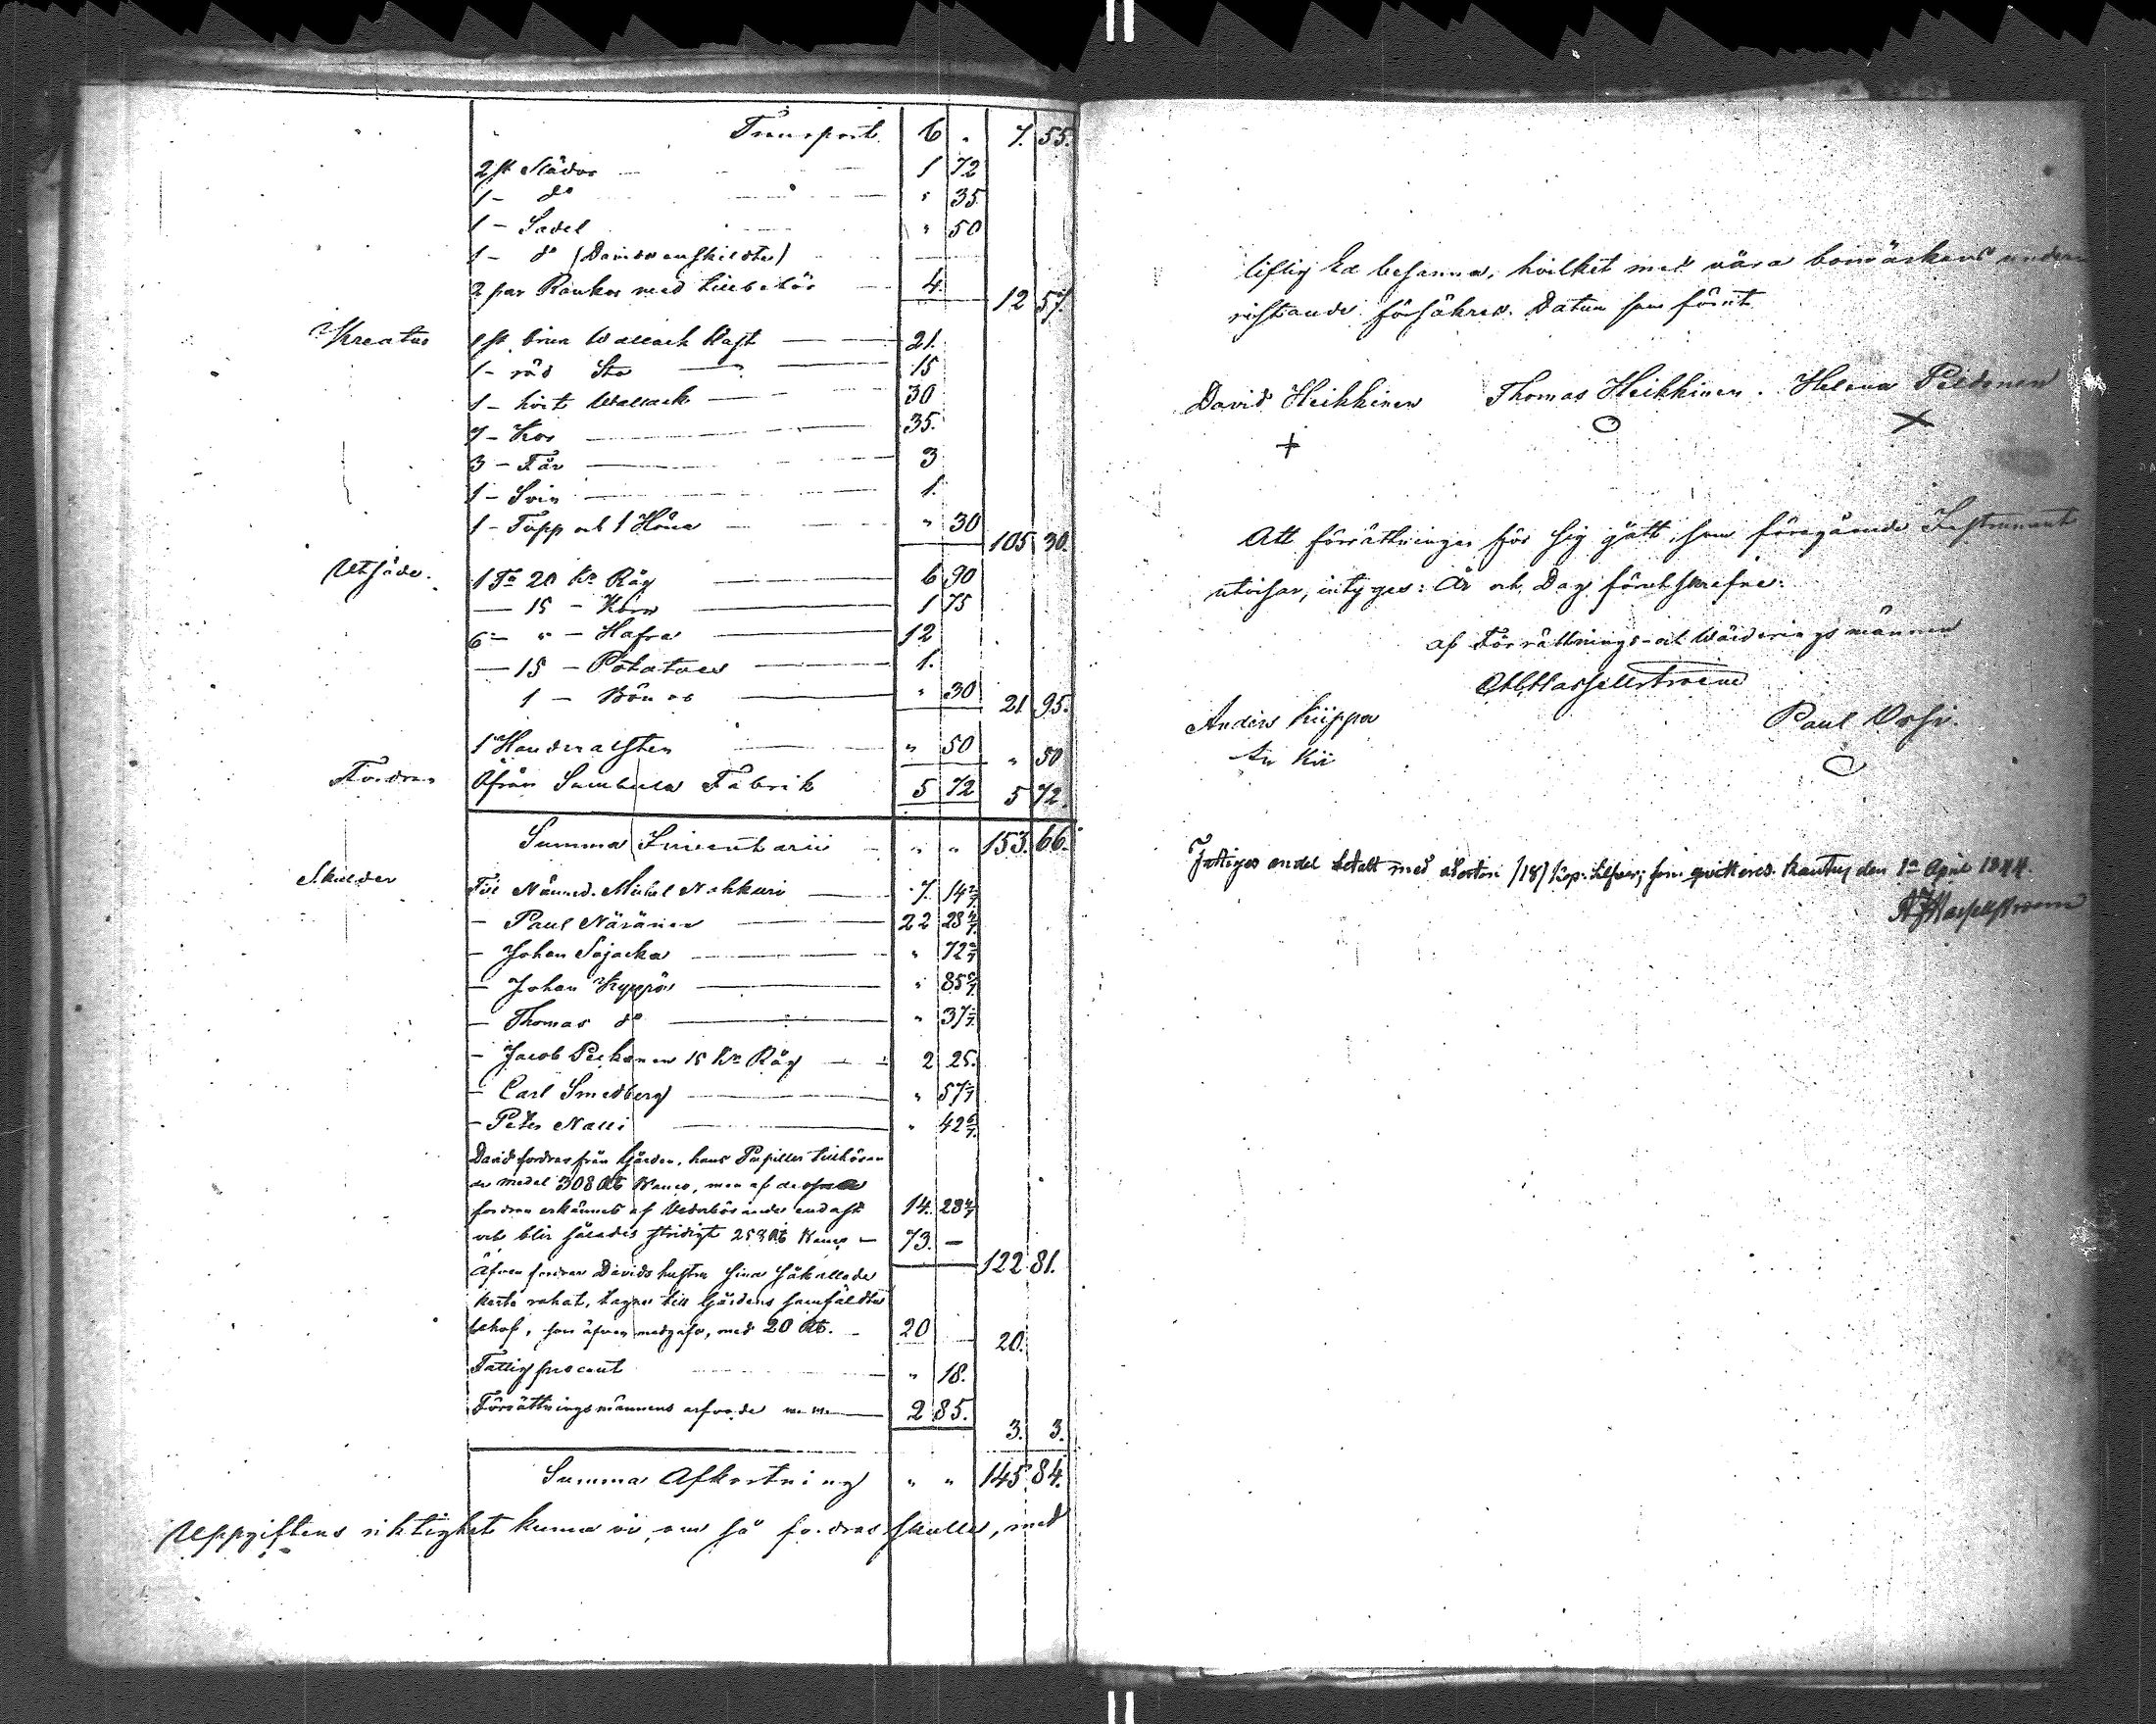 Transport. 6 " 7. 55.
2 st Slädor 1 72
1 - do " 35
1 - Sadel " 50
1 - do (Davids enskildta)
2 par Rankor med tillbehör 4. 12 57.
Kreatur 1 st brun Wallach Häst 21.
1 - röd Sto 15
1 - hvit Wallach 30
7 - Kor 35.
3 - Får 3
1 - Svin 1.
1 - Tupp och 1 Höna " 30 105 30.
Utsäde. 1 Ta 20 kr Råg 6 90
— 15 - Korn 1 75
6 - " - Hafra 12
— 15 - Potatoes 1.
1 - Bönor " 30 21 95.
1 " 50 " 50
Fordran Ifrån Sumbula Fabrik 5 72 5 72.
Summa Inventarii " " 153. 66.
Skulder Till Nämnd. Michel Nokkari 7. 14 2/7
- Paul Näränen 22 28 4/7
- Johan Sojacka " 72
- Johan Kyppö " 85 5/7
- Thomas do " 37
- Jacob Pekonen 15 kr Råg 2 25.
- Carl Smedberg " 57 1/7
- Peter Nalli " 42 6/7
David fordrar från Gården, hans Pupiller tillhöran
de medel 308 Rb Banco, men af dessa
fordran erkännes af Vederbörande endast 14. 28 4/7
och blir således stridigt 258 Rb Banco — 73. — 122 81.
Äfven fordrar Davids hustru sina såkallade
rahat, tagne till Gårdens samfäldta
behof, som äfven medgafs, med 20 Rb. 20 20.
Fattigprocent " 18.
Förrättningsmännens arfvode m. m. 2 85. 3. 3.
Summa Afkortning " " 145. 84.
Uppgiftens riktighet kunna vi, om så fordras skulle, med
liflig Ed besanna, hvilket med våra bomärkens under
ristande försäkras. Datum som förut
David Heikkinen Thomas Heikkinen. Helena Peldonen
Att förrättningen för sig gått, som föregående Instrument
utvisar, intygas: År och Dag förutskrefne.
af Förrättnings- och Wärderings männen
Hasselstroem
Anders Kiippa Paul Orsi.
An Kii
Fattiges andel betalt med aderton /18/ kop. silfver; som qvitteras. Kautus den 1n April 1844.
Hasselstroem